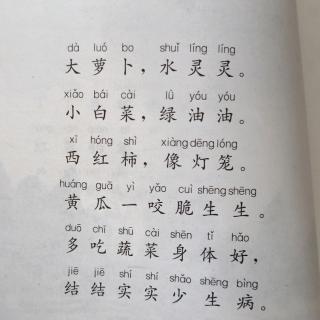 dà luó bo shuǐ líng líng
大萝卜，水灵灵。
xiǎo bái cài lǜ yóu yóu
小白菜，绿油油。
xī hóng shì xiàng dēng lóng
西红柿，像灯笼。
huáng guā yì yǎo cuì shēng shēng
黄瓜一咬脆生生。
duō chī shū cài shēn tǐ hǎo
多吃蔬菜身体好，
jiē jiē shí shí shǎo shēng bìng
结结实实少生病。